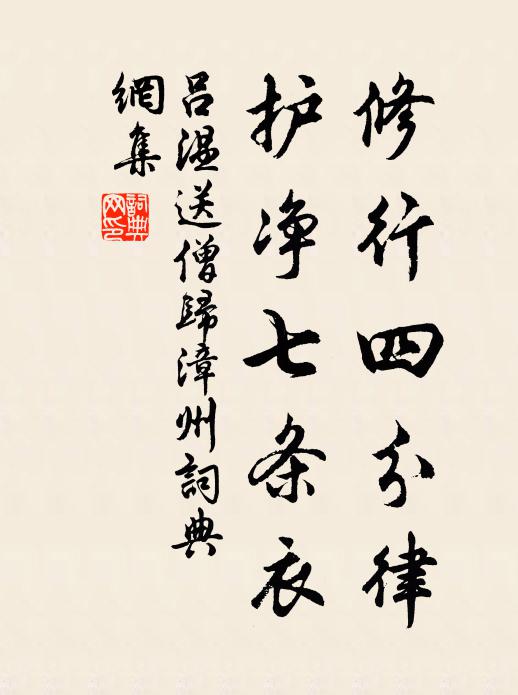 修行四分律
护净七条衣
吕温送僧歸漳州詞典
網集
詞典
网印